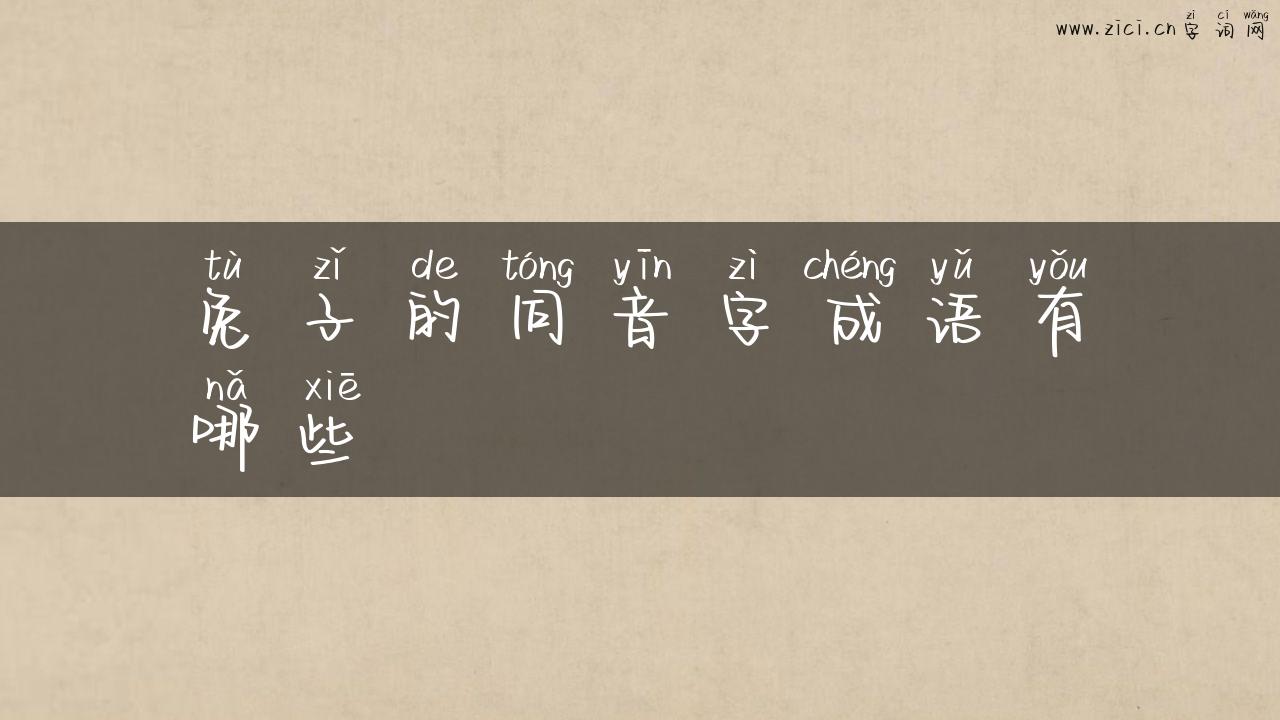 zì cí wǎng
www.zici.cn 字词网
tù zǐ de tóng yīn zì chéng yǔ yǒu
兔子的同音字成语有
nǎ xiē
哪些